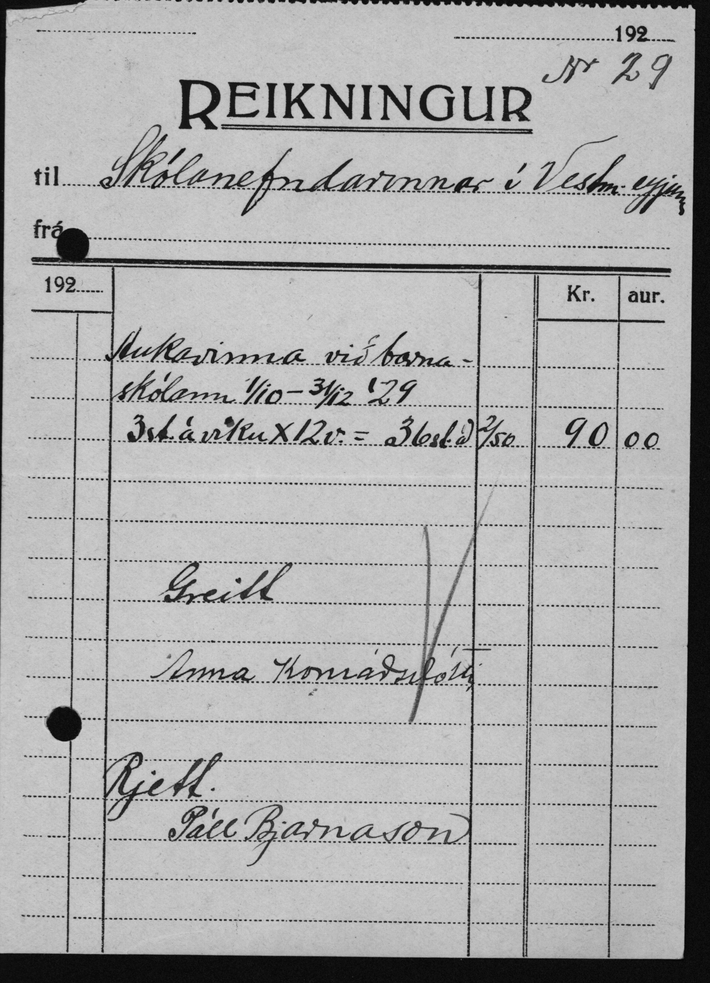 192
Nr 29
REIKNINGUR
til Skólanefndarinnar í Vestm.eyjum
frá
192 Kr. aur.
Aukavinna við barna-
skólann 1/10 - 31/12 '29
3 st. á viku X 12 v. = 36 st. á 2/50 90 00
Greitt
Anna Konráðsdóttir
Rjett.
Páll Bjarnason